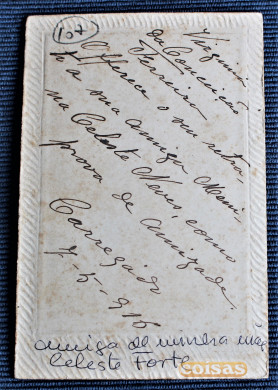 107
Virginia
da Conceição
Ferreira
Offerece o seu retra
to a sua amiga Meni
na Celeste Neves, como
prova de amizade.
Carregado
7-5-916
amiga de minha mãe
Celeste Forte
coisas